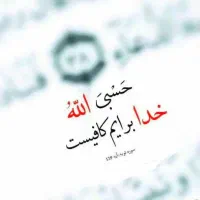 حَسْبِیَ اللّهُ
خدا برایم کافیست